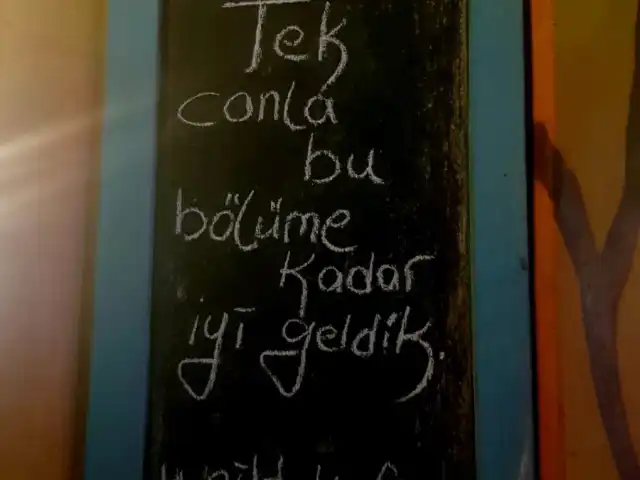 Tek
conla
bu
bölüme
kadar
iyi geldik.